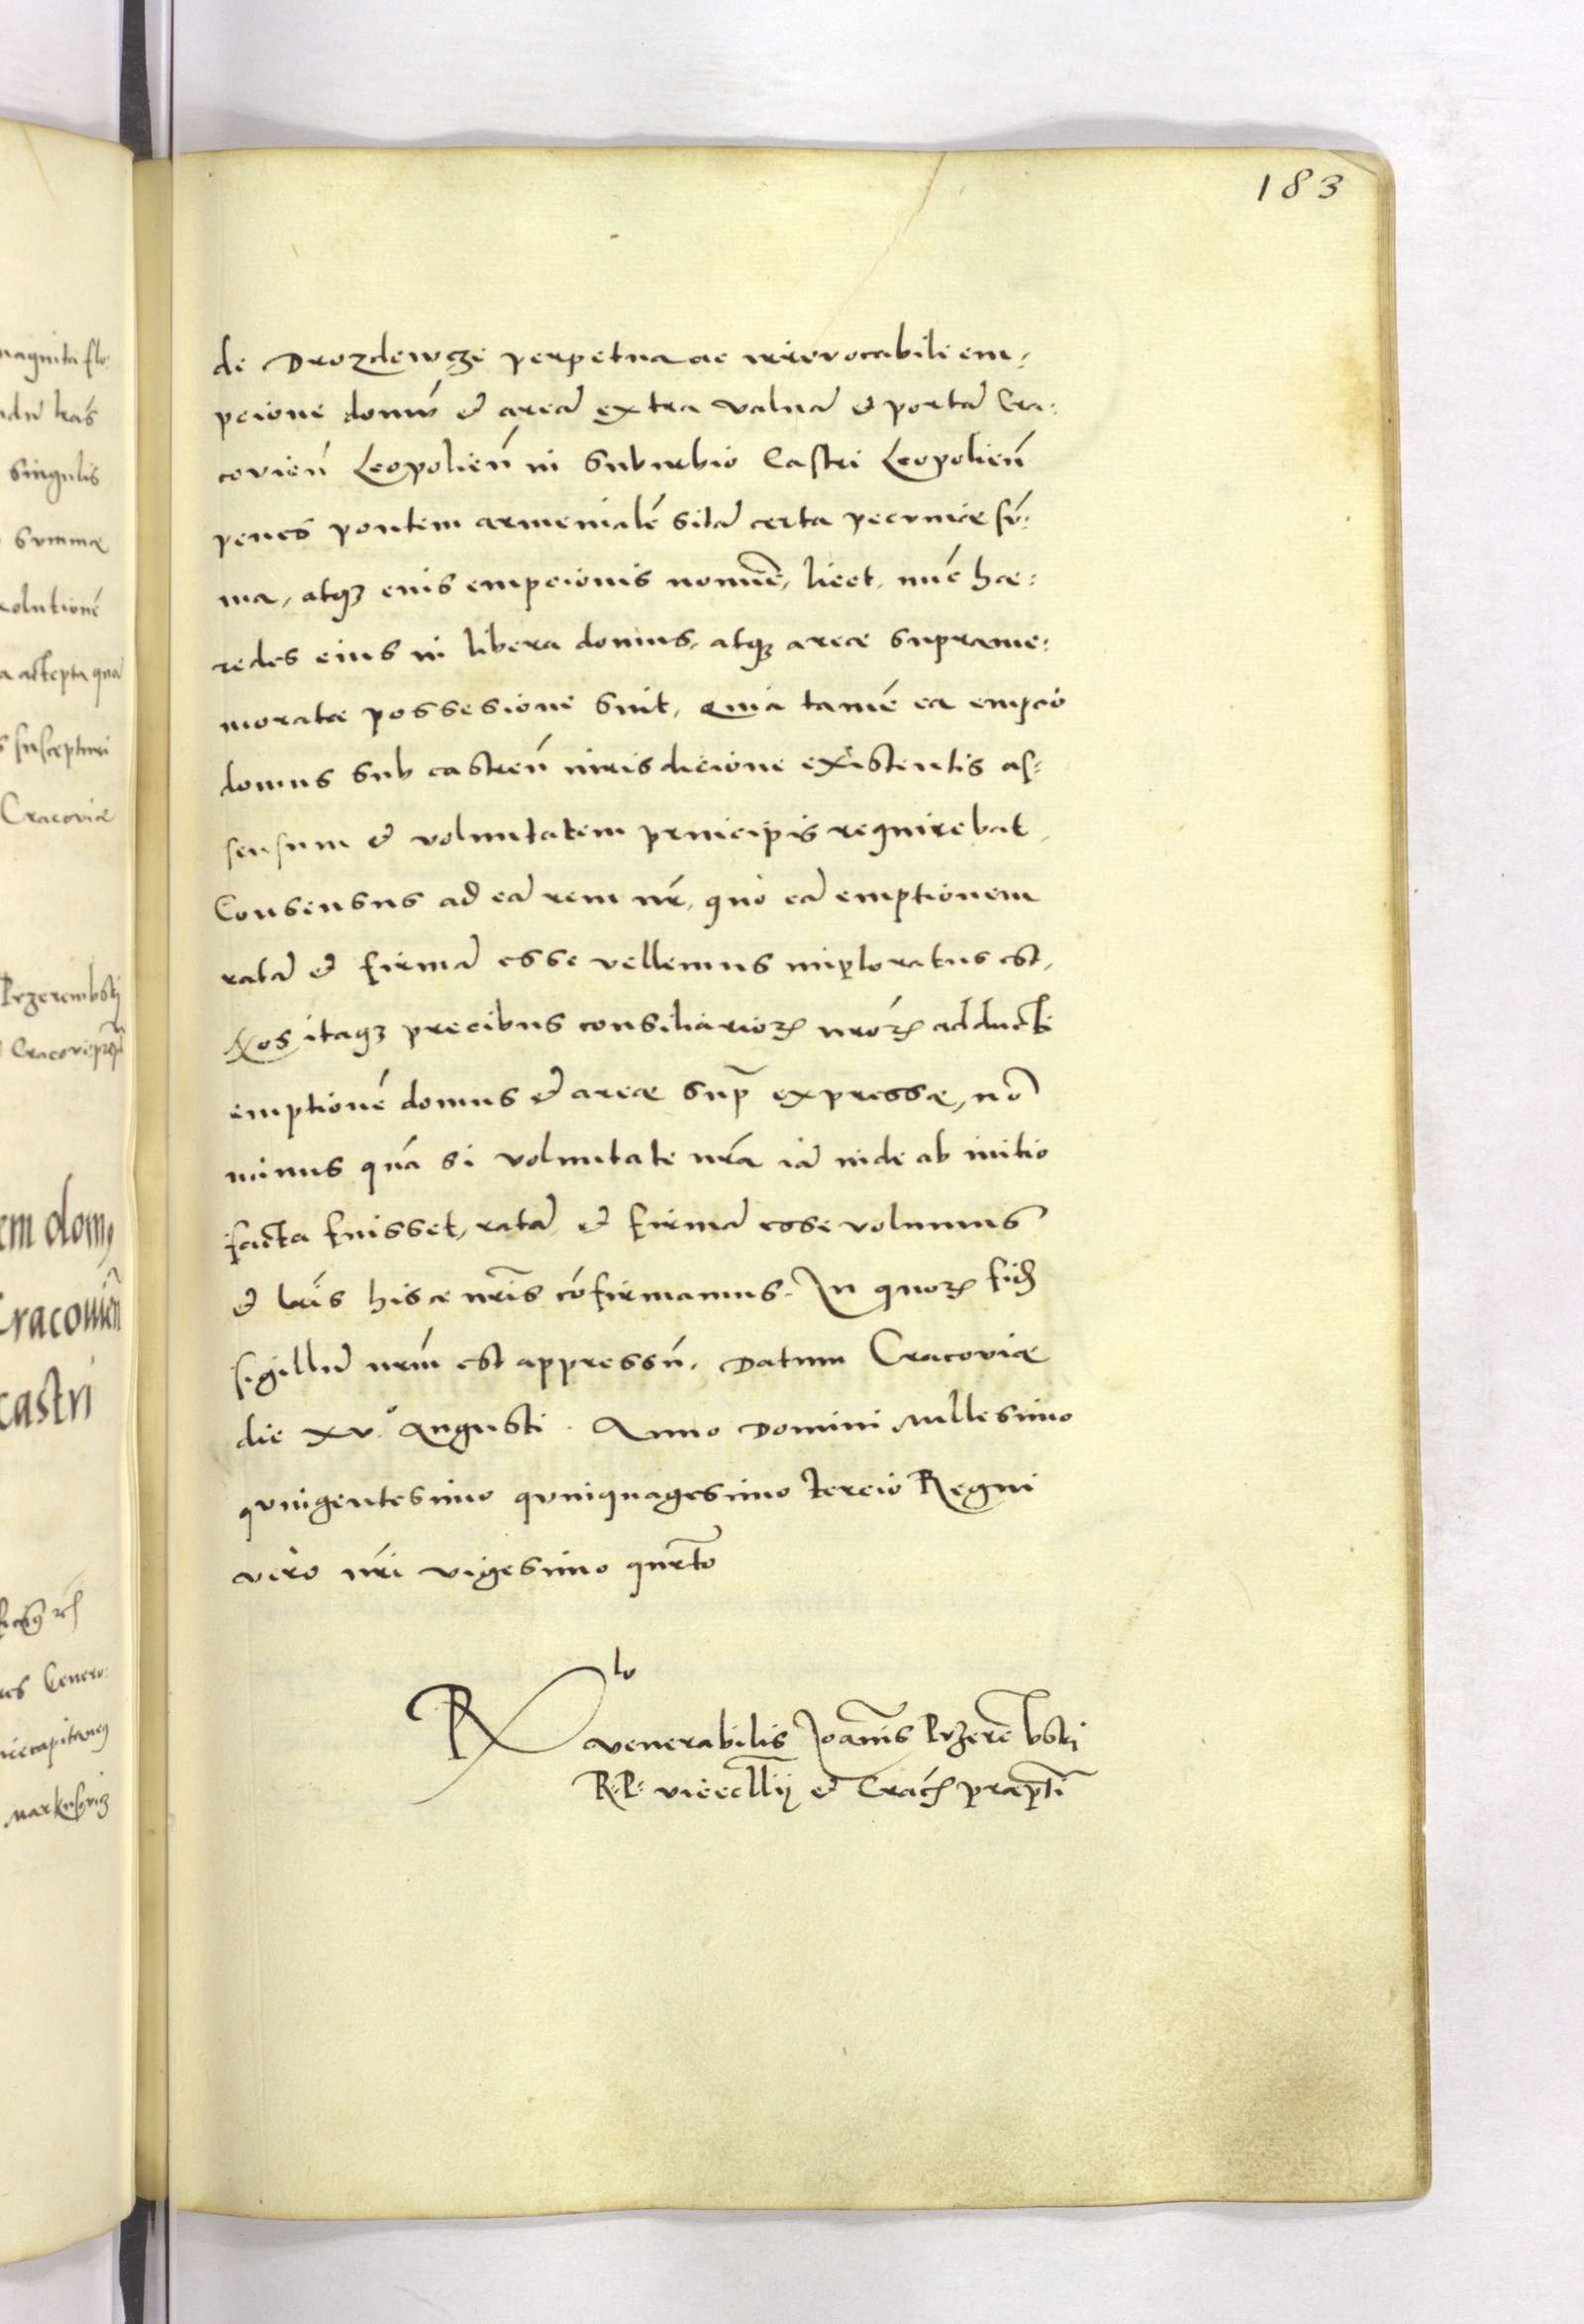 183
de Drozdewcze perpetua ac irrevocabili em-
pcione domũ et areã extra valuã et portã Cra-
covieñ Leopolieñ in suburbio Castri Leopolieñ
penes pontem armenialẽ sitã certa pecuniæ sũ-
ma, atqꝫ eius empcionis nomine, licet, nũc hæ-
redes eius in libera domus, atqꝫ areæ suprame-
moratæ possesione sint, quia tamẽ ea empcio
domus sub castreñ iurisdicione existentis as-
sensum et voluntatem principis requirebat,
Consensus ad eã rem nr̃, quo eã emptionem
ratã et firmã esse vellemus imploratus est,
Nos itaqꝫ precibus consiliarioꝝ nr̃oꝝ adducti
emptionẽ domus et areæ sup̃ expressæ, nõ
minus quã si voluntate nr̃a iã inde ab initio
facta fuisset, ratã et firmã esse volumus
et lr̃is hisce nr̃is cõfirmamus. In quoꝝ fid̃
sigillũ nr̃m est appressũ. Datum Cracoviæ
die xv.° Augusti. Anno Domini Millesimo
quingentesimo quinquagesimo tercio Regni
vero nr̃i vigesimo quarto
R lo
venerabilis Joannis Przerẽbski
R. P. vicecllr̃ij et Crac̃ præpti
magnita flo
lr̃as
singulis
summæ
solutionẽ
a accepta quã
s suscepturi
Cracoviæ
Przerembski
Cracovi præpti
em dom9
Cracovieñ
castri
res Cenero-
vicecapitaneus